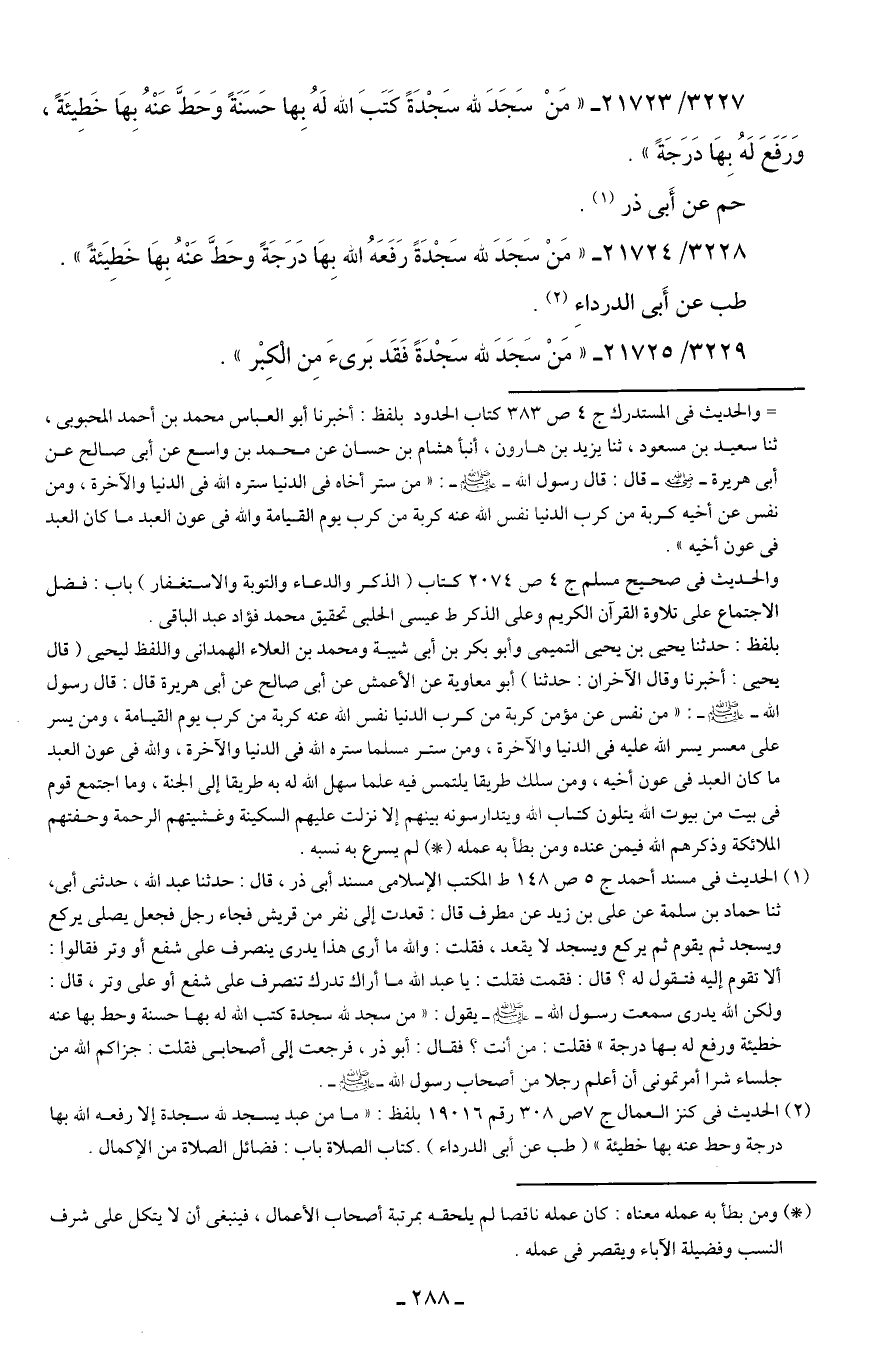 ٣٢٢٧/ ٢١٧٢٣ـ « مَنْ سَجَدَ لله سَجْدَةً كَتَبَ الله لَهُ بِها حَسَنَةً وَحَطَّ عَنْهُ بِهَا خَطِيئَةً ،
وَرَفَعَ لَهُ بِهَا دَرَجَةً » .
حم عن أَبى ذر (١) .
٣٢٢٨/ ٢١٧٢٤ـ « مَنْ سَجَدَ لله سَجْدَةً رَفَعَهُ الله بِهَا دَرَجَةً وحَطَّ عَنْهُ بِهَا خَطِيَئَةً » .
طب عن أَبى الدرداءِ (٢) .
٣٢٢٩/ ٢١٧٢٥ـ « مَنْ سَجَدَ لله سَجْدَةً فَقَد بَرِىءَ مِن الْكِبْر » .
= والحديث فى المستدرك ج ٤ ص ٣٨٣ كتاب الحدود بلفظ : أخبرنا أبو العباس محمد بن أحمد المحبوبى ،
ثنا سعيد بن مسعود ، ثنا يزيد بن هارون ، أنبأ هشام بن حسان عن محمد بن واسع عن أبى صالح عن
أبى هريرة ـ رضي الله عنه ـ قال : قال رسول الله ـ ﷺ ـ : « من ستر أخاه فى الدنيا ستره الله فى الدنيا والآخرة ، ومن
نفس عن أخيه كربة من كرب الدنيا نفس الله عنه كربة من كرب يوم القيامة والله فى عون العبد ما كان العبد
فى عون أخيه » .
والحديث فى صحيح مسلم ج ٤ ص ٢٠٧٤ كتاب ( الذكر والدعاء والتوبة والاستغفار ) باب : فضل
الاجتماع على تلاوة القرآن الكريم وعلى الذكر ط عيسى الحلبى تحقيق محمد فؤاد عبد الباقى .
بلفظ : حدثنا يحيى بن يحيى التميمى وأبو بكر بن أبى شيبة ومحمد بن العلاء الهمدانى واللفظ ليحيى ( قال
يحيى : أخبرنا وقال الآخران : حدثنا ) أبو معاوية عن الأعمش عن أبى صالح عن أبى هريرة قال : قال رسول
الله ـ ﷺ ـ : « من نفس عن مؤمن كربة من كرب الدنيا نفس الله عنه كربة من كرب يوم القيامة ، ومن يسر
على معسر يسر الله عليه فى الدنيا والآخرة ، ومن ستر مسلما ستره الله فى الدنيا والآخرة ، والله فى عون العبد
ما كان العبد فى عون أخيه ، ومن سلك طريقا يلتمس فيه علما سهل الله له به طريقا إلى الجنة ، وما اجتمع قوم
فى بيت من بيوت الله يتلون كتاب الله ويتدارسونه بينهم إلا نزلت عليهم السكينة وغشيتهم الرحمة وحفتهم
الملائكة وذكرهم الله فيمن عنده ومن بطأ به عمله (*) لم يسرع به نسبه .
(١) الحديث فى مسند أحمد ج ٥ ص ١٤٨ ط المكتب الإسلامى مسند أبى ذر ، قال : حدثنا عبد الله ، حدثنى أبى،
ثنا حماد بن سلمة عن على بن زيد عن مطرف قال : قعدت إلى نفر من قريش فجاء رجل فجعل يصلى يركع
ويسجد ثم يقوم ثم يركع ويسجد لا يقعد ، فقلت : والله ما أرى هذا يدرى ينصرف على شفع أو وتر فقالوا :
ألا تقوم إليه فتقول له ؟ قال : فقمت فقلت : يا عبد الله ما أراك تدرك تنصرف على شفع أو على وتر ، قال :
ولكن الله يدرى سمعت رسول الله ـ ﷺ ـ يقول : « من سجد لله سجدة كتب الله له بها حسنة وحط بها عنه
خطيئة ورفع له بها درجة » فقلت : من أنت ؟ فقال : أبو ذر ، فرجعت إلى أصحابى فقلت : جزاكم الله من
جلساء شرا أمرتمونى أن أعلم رجلا من أصحاب رسول الله ـ ﷺ ـ .
(٢) الحديث فى كنز العمال ج ٧ص ٣٠٨ رقم ١٩٠١٦ بلفظ : « ما من عبد يسجد لله سجدة إلا رفعه الله بها
درجة وحط عنه بها خطيئة » ( طب عن أبى الدرداء ) .كتاب الصلاة باب : فضائل الصلاة من الإكمال .
(*) ومن بطأ به عمله معناه : كان عمله ناقصا لم يلحقه بمرتبة أصحاب الأعمال ، فينبغى أن لا يتكل على شرف
النسب وفضيلة الآباء ويقصر فى عمله .
ـ ٢٨٨ ـ